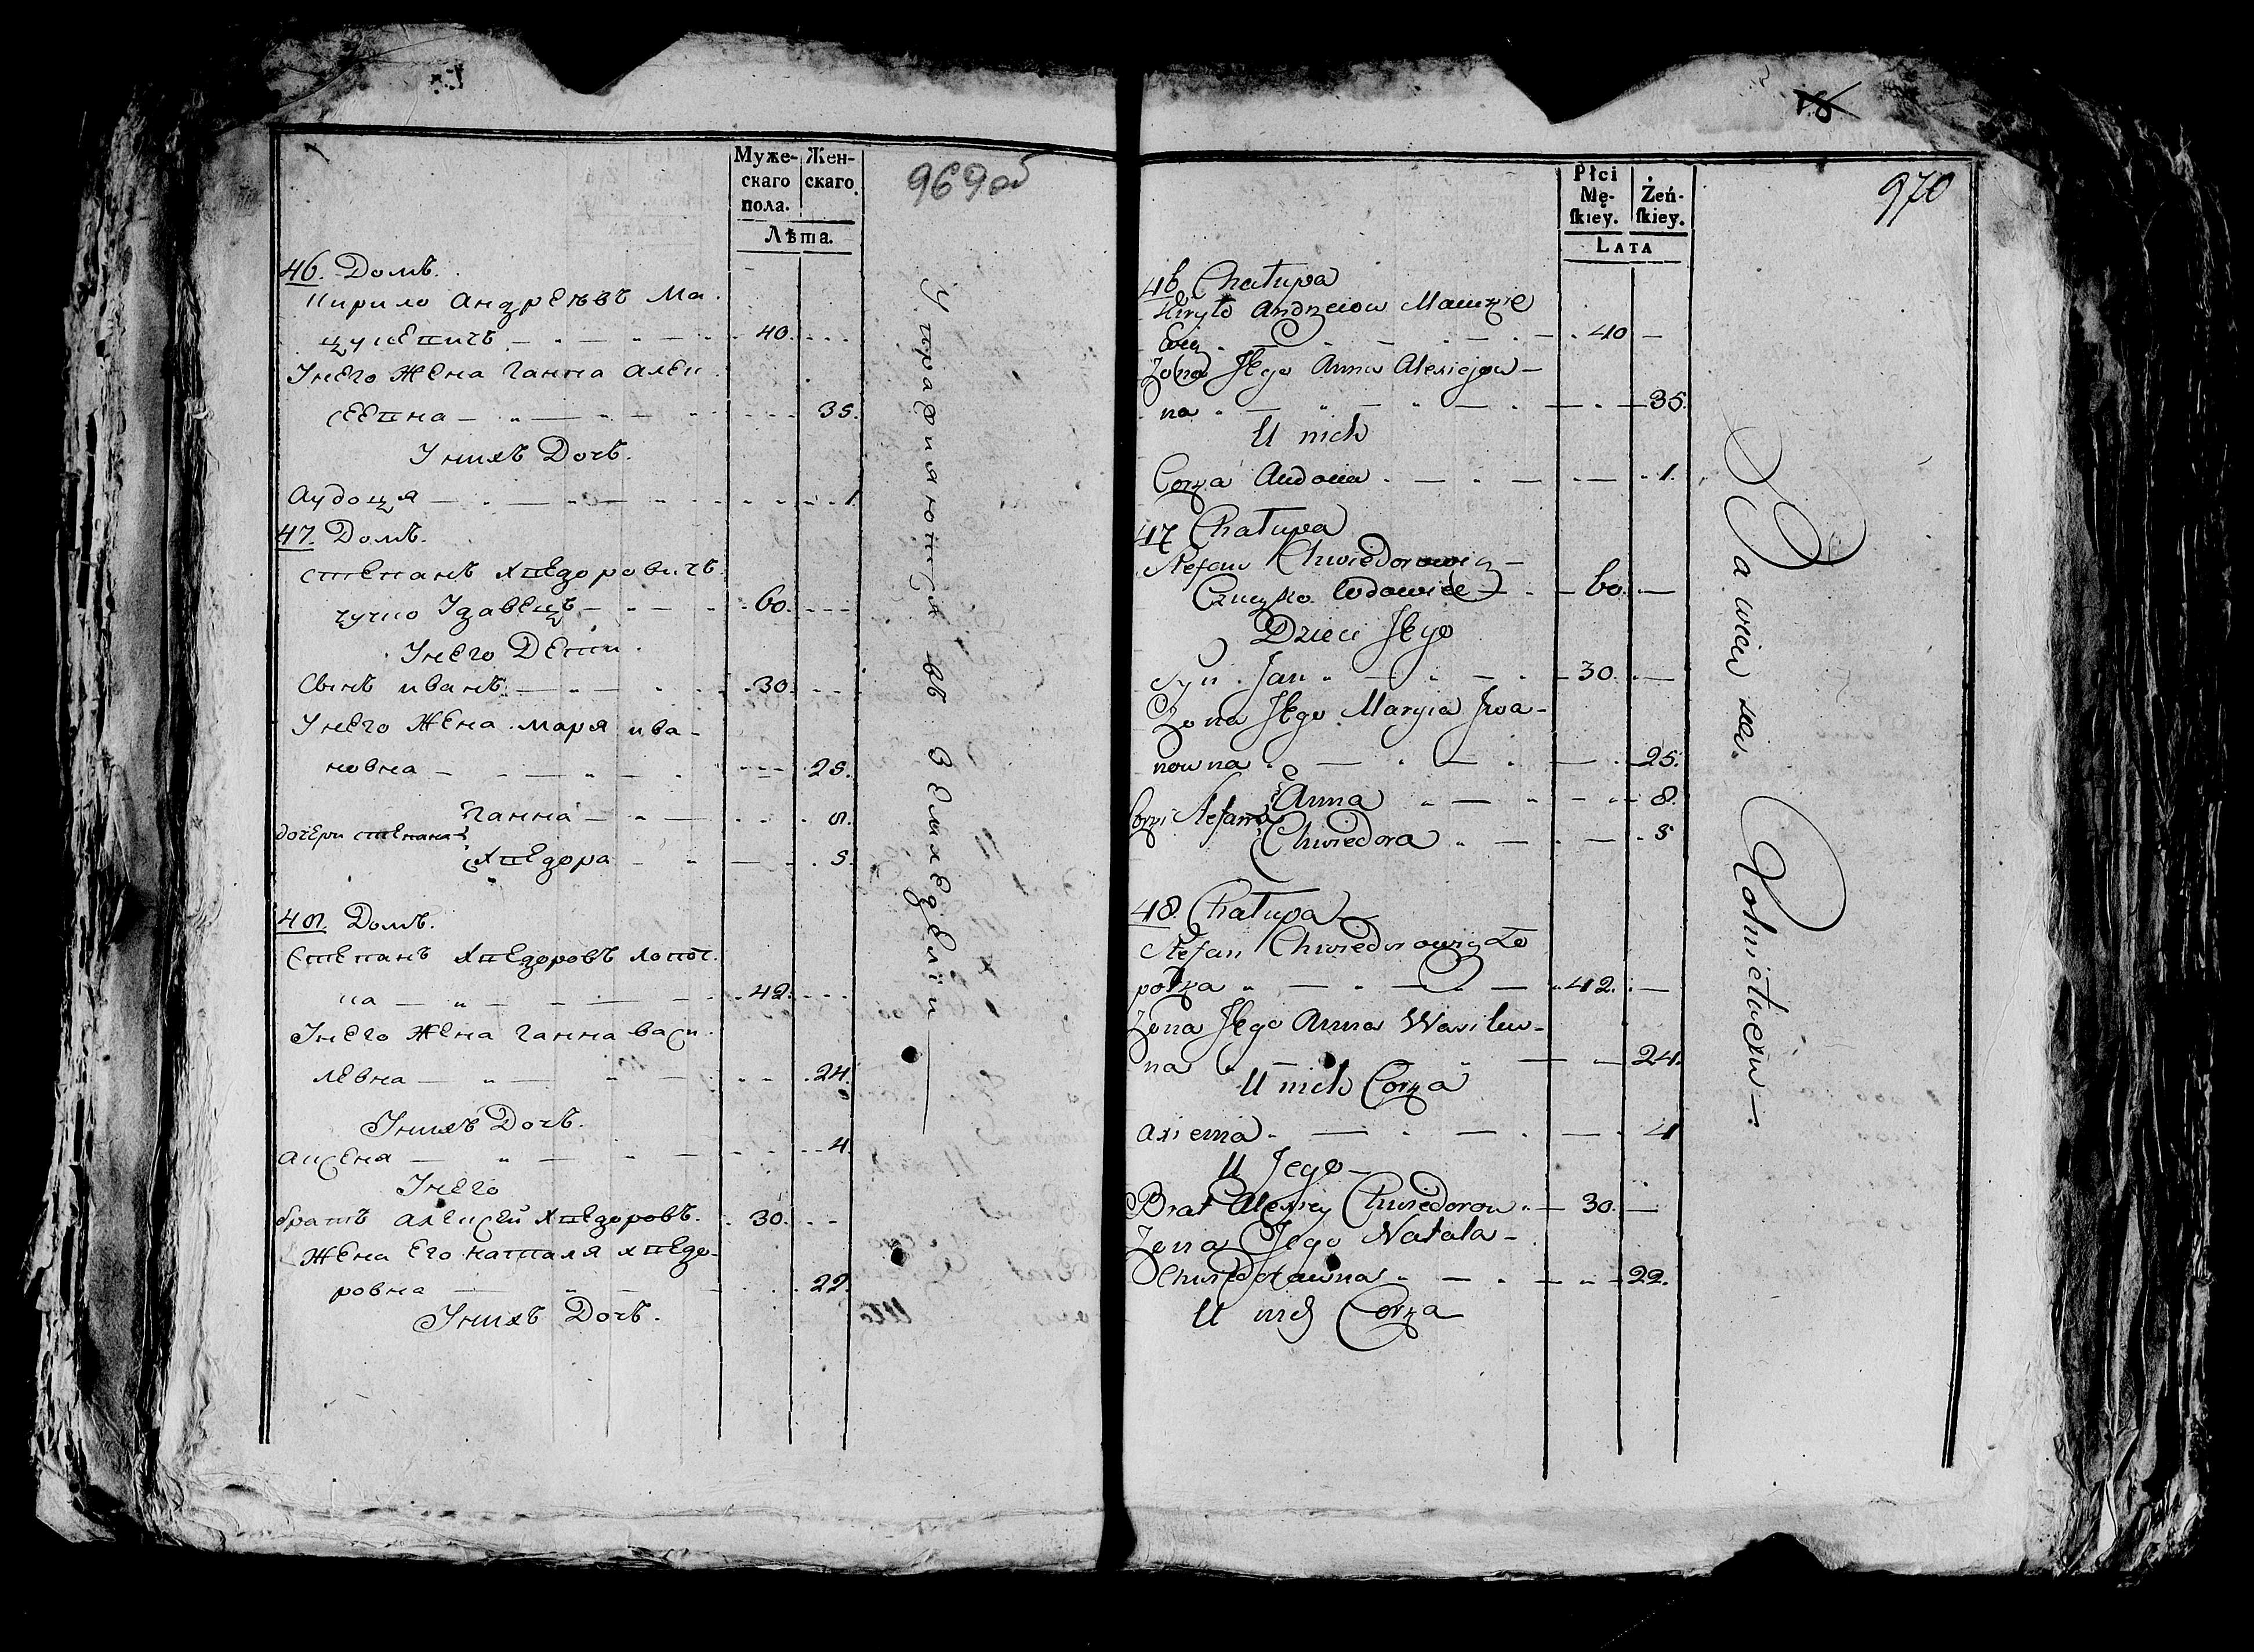 Муже-
скаго
пола.
Жен-
скаго.
Лѣта.
969 об
46. Домъ.
Кирило Андреѣвъ Ма
цукевичъ 40
У него жена Ганна алек
сеевна 35.
У нихъ Дочь.
Аудоця 1
47. Домъ.
степанъ хведоровичъ
чучко Удавецъ 60
У него Дети.
Сынъ иванъ 30
У него жена маря ива-
новна 25.
Ганна 8.
дочери степана
Хведора 5.
48. Домъ.
Степанъ хведоровъ лопот.
ка 42
У него жена ганна васи.
левна 24.
У нихъ Дочь.
аксеня 4.
У него
братъ алексей хведоровъ. 30.
жена его наталя хведо-
ровна 22.
У нихъ Дочь.
упражняются въ земледелiи
18
970
Płci
Mę-
skiey.
Żeń-
skiey.
LATA
46 Chałupa
Kiryło Andrzeiow Macukie
wicz 40 —
Zona Jego Anna Alexiejow—
na 35.
U nich
Corka Audocia 1.
47 Chałupa
Stefan Chwiedorowicz—
Czuczko Wdowiec 60 —
Dzieci Jego
Syn Jan 30 —
Zona Jego Maryia Iwa-
nowna 25.
Anna 8.
Corki Stefana
Chwiedora 5
48. Chałupa
Stefan Chwiedorowicz Ło
potka 42. —
Zona Jego Anna Wasilew-
na 24.
U nich Corka
axienia 4
U Jego—
Brat Alexiey Chwiedorow 30. —
Zona Jego Natala—
Chwiedorowna 22.
U nich Corka
Bawiew se. Rolnictwem—.